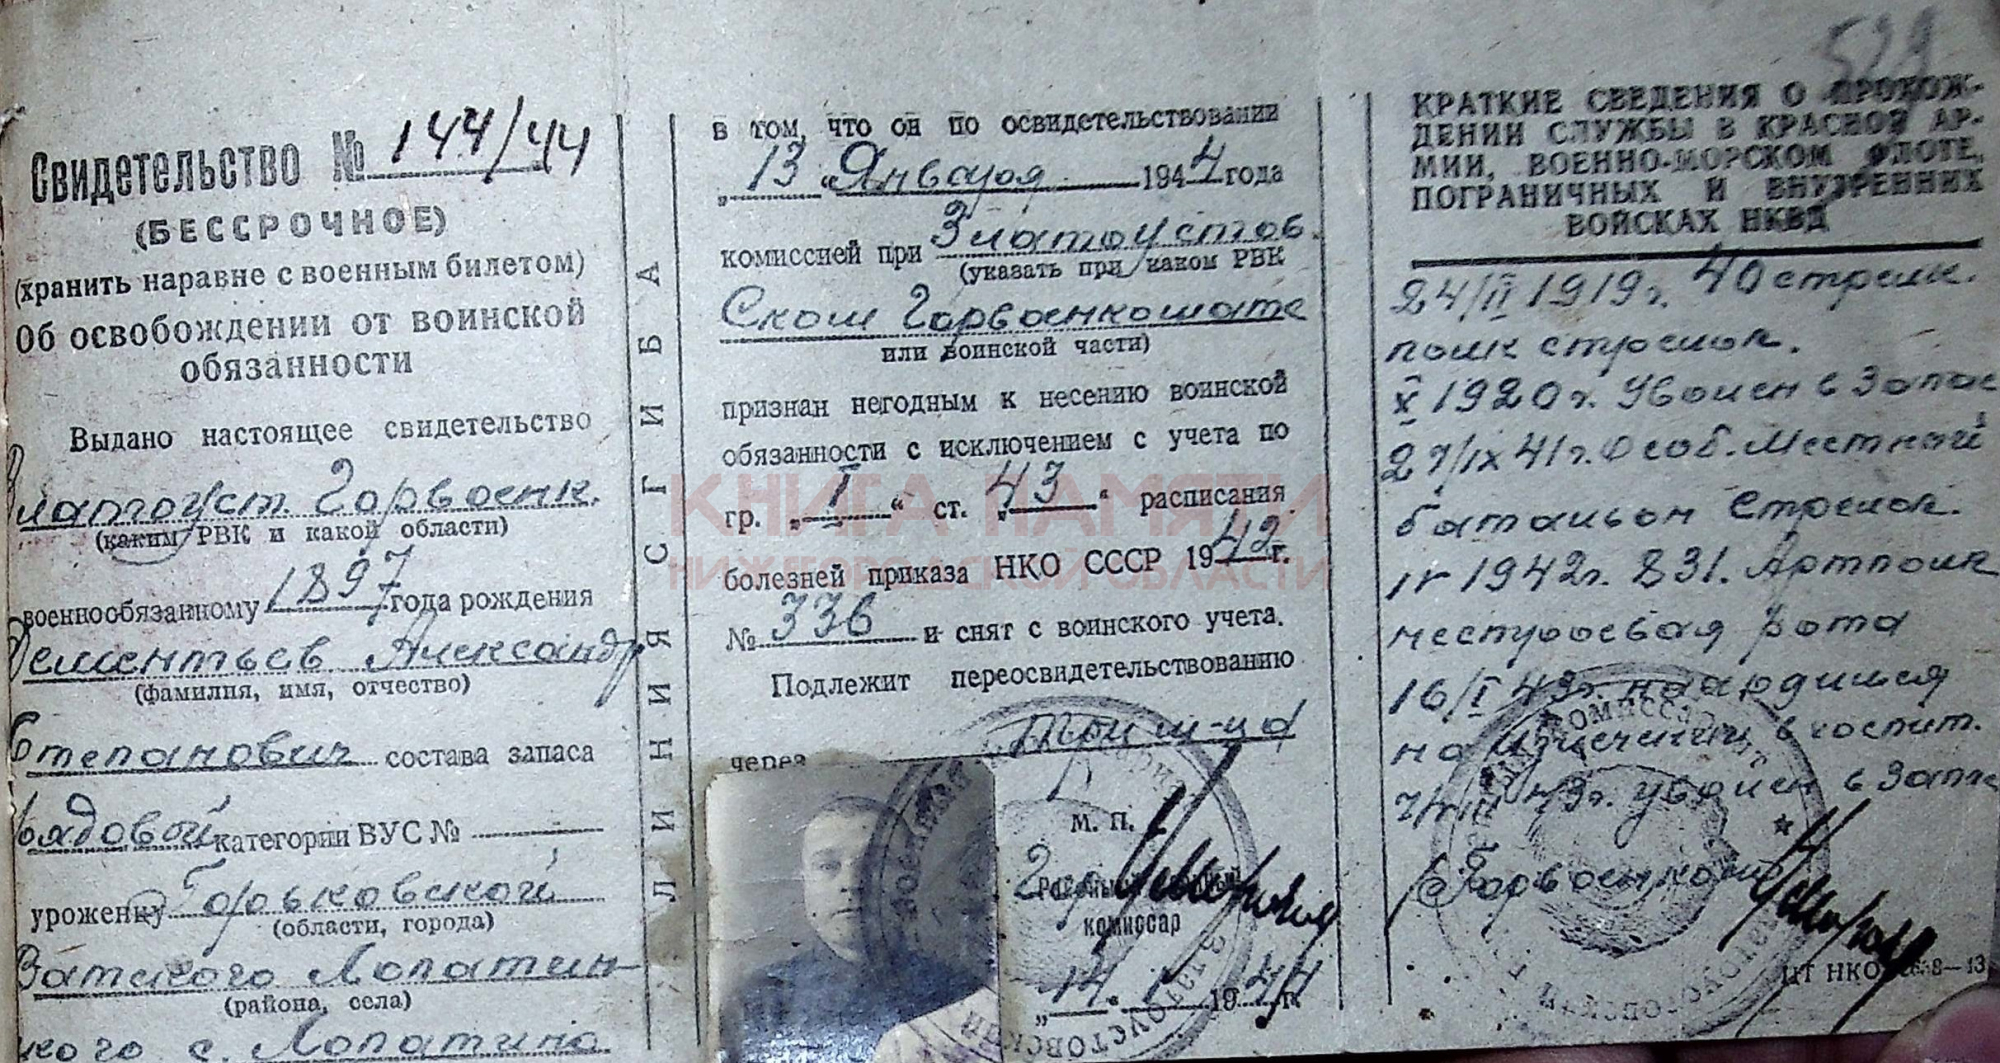 529
Свидетельство № 144/44
(БЕССРОЧНОЕ)
(хранить наравне с военным билетом)
Об освобождении от воинской
обязанности
Выдано настоящее свидетельство
Златоуст. Горвоенк.
(каким РВК и какой области)
военнообязанному 1897 года рождения
Дементьев Александр
(фамилия, имя, отчество)
Степанович состава запаса
рядовой категории ВУС №
уроженцу Горьковской
(области, города)
Ватского Лопатин-
(района, села)
кого с. Лопатино
ЛИНИЯ СГИБА
в том, что он по освидетельствовании
„13" Января 1944 года
комиссией при Златоустов.
(указать при каком РВК
ском Горвоенкомате
или воинской части)
признан негодным к несению воинской
обязанности с исключением с учета по
гр. „I" ст. „43" расписания
болезней приказа НКО СССР 1942 г.
№ 336 и снят с воинского учета.
Подлежит переосвидетельствованию
через
М. П.
комиссар
„14" I 1944 г.
КРАТКИЕ СВЕДЕНИЯ О ПРОХОЖ-
ДЕНИИ СЛУЖБЫ В КРАСНОЙ АР-
МИИ, ВОЕННО-МОРСКОМ ФЛОТЕ,
ПОГРАНИЧНЫХ И ВНУТРЕННИХ
ВОЙСКАХ НКВД
24/II 1919 г. 40 стрелк.
полк стрелок.
X 1920 г. Уволен в запас
27/IX 41 г. Особ. Местной
батальон стрелок.
IV 1942 г. 831. Артполк
нестроевая рота
16/I 43 г. находился
на излечении в госпит.
43 г. уволен в запас
Горвоенком
ЦТ НКО
КНИГА ПАМЯТИ
НИЖЕГОРОДСКОЙ ОБЛАСТИ